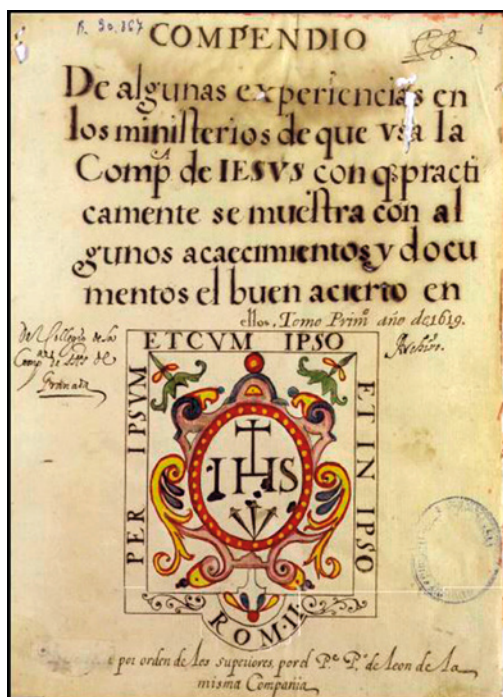 R. 30.867
COMPENDIO
De algunas experiencias en
los ministerios de que vsa la
Compª de IESVS con q practi
camente se muestra con al
gunos acaecimientos y docu
mentos el buen acierto en
ellos. Tomo Primº año de 1619.
Del Collegio de la
Comp de
Granada
PER IPSVM
ETCVM IPSO
ET IN IPSO
IHS
ROM. II
por orden de los superiores, por el Pe. Pº. de Leon de la
misma Compañia